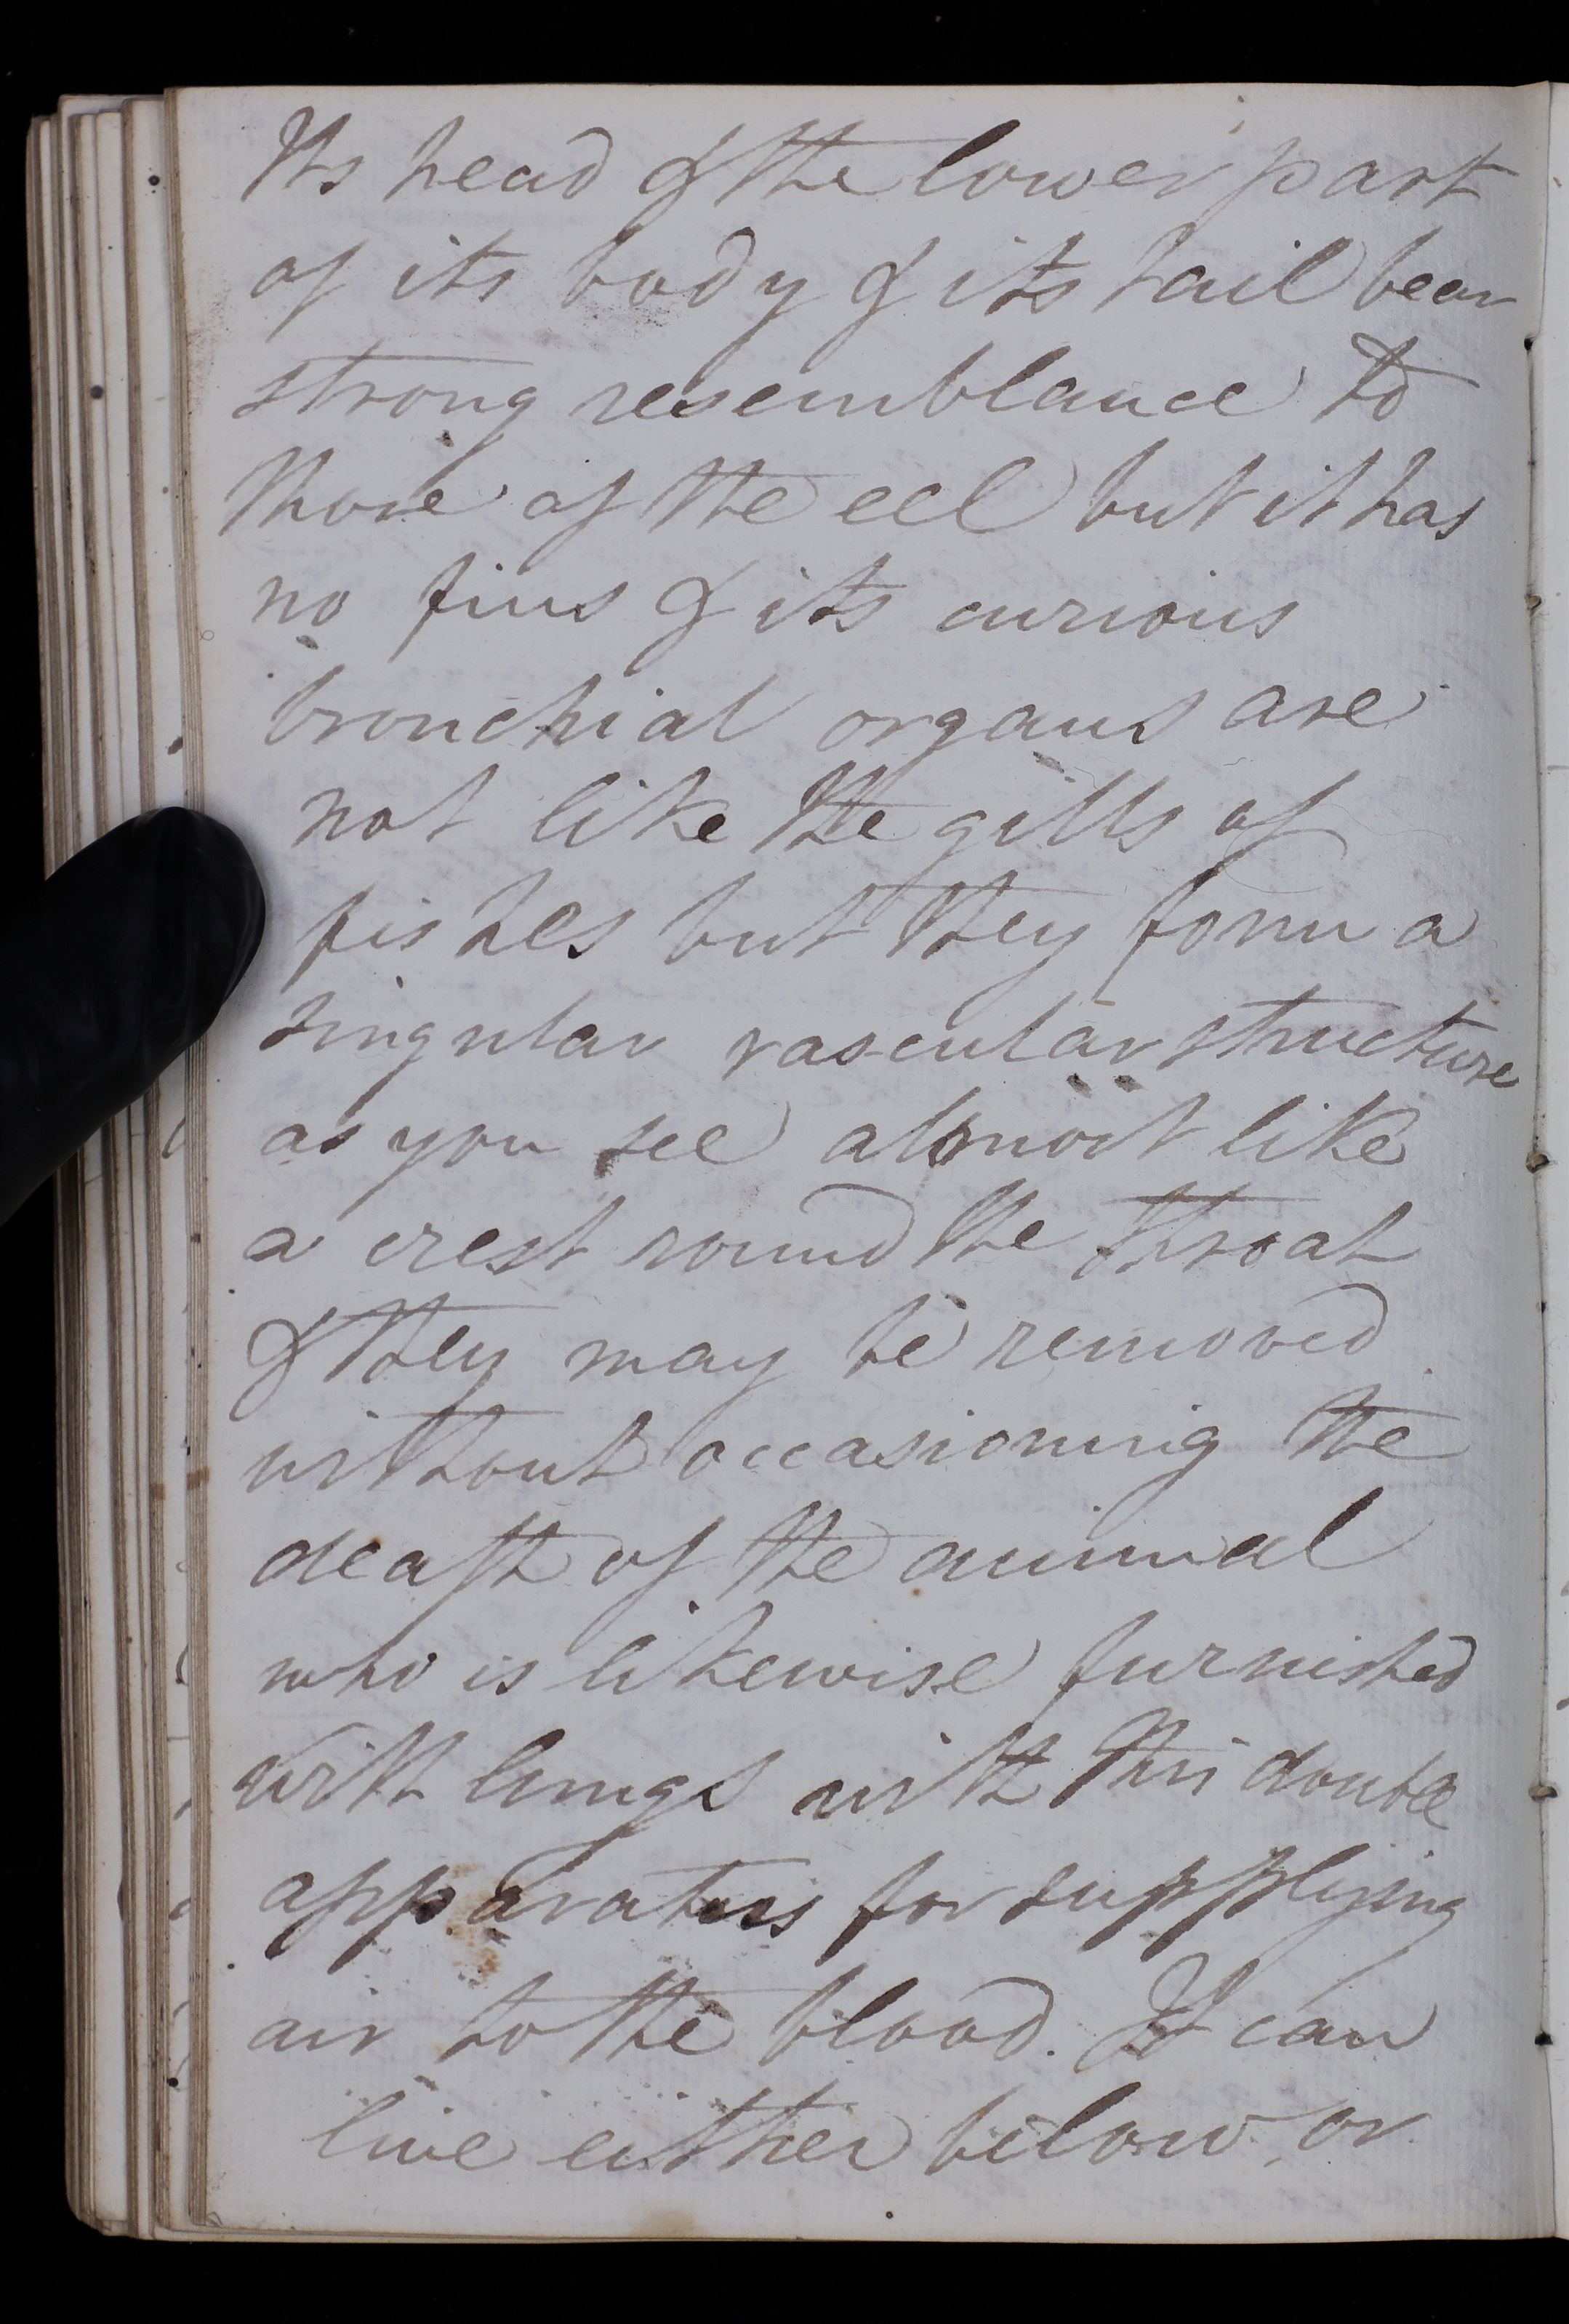 Its head & the lower part
of its body & its tail bear
strong resemblance to
those of the eel but it has
no fins & its curious
bronchial organs are
not like the gills of
fishes but they form a
singular vascular structure
as you see almost like
a crest round the throat
& they may be removed
without occasioning the
death of the animal
who is likewise furnished
with lungs with this double
apparatus for supplying
air to the blood. It can
live either below or